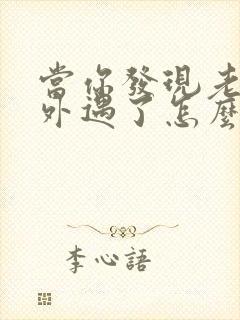 當你發現老
外遇了怎麼
李心語